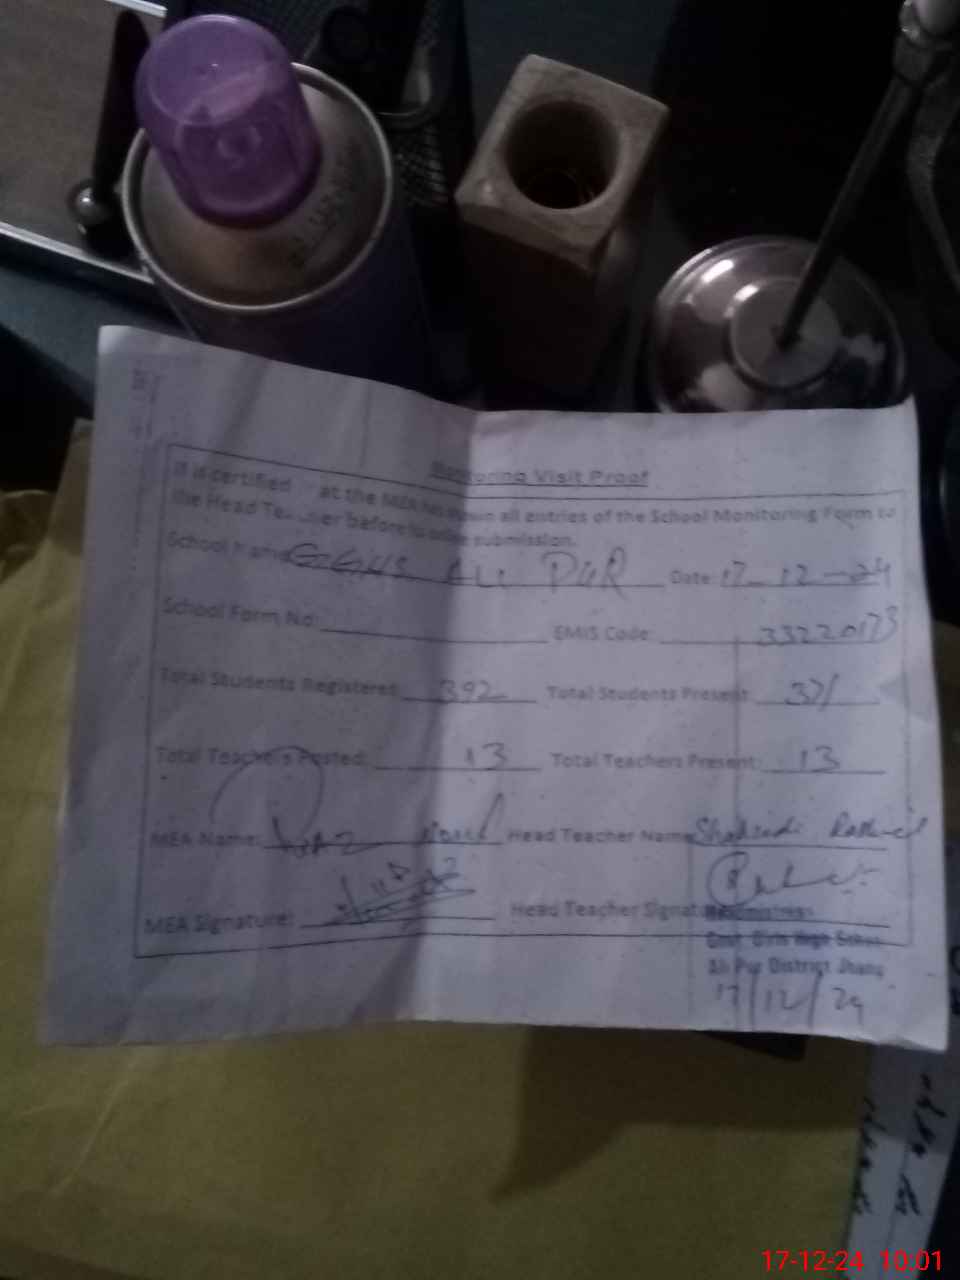 Monitoring Visit Proof
It is certified that the MEA has shown all entries of the School Monitoring Form to
the Head Teacher before its online submission.
School Name: GGHS ALI PUR Date: 17-12-24
School Form No: EMIS Code: 33220173
Total Students Registered: 392 Total Students Present: 371
Total Teachers Posted: 13 Total Teachers Present: 13
MEA Name: Head Teacher Name:
MEA Signature: Head Teacher Signature:
Headmistress
Govt. Girls High School
Ali Pur District Jhang
17/12/24
17-12-24 10:01